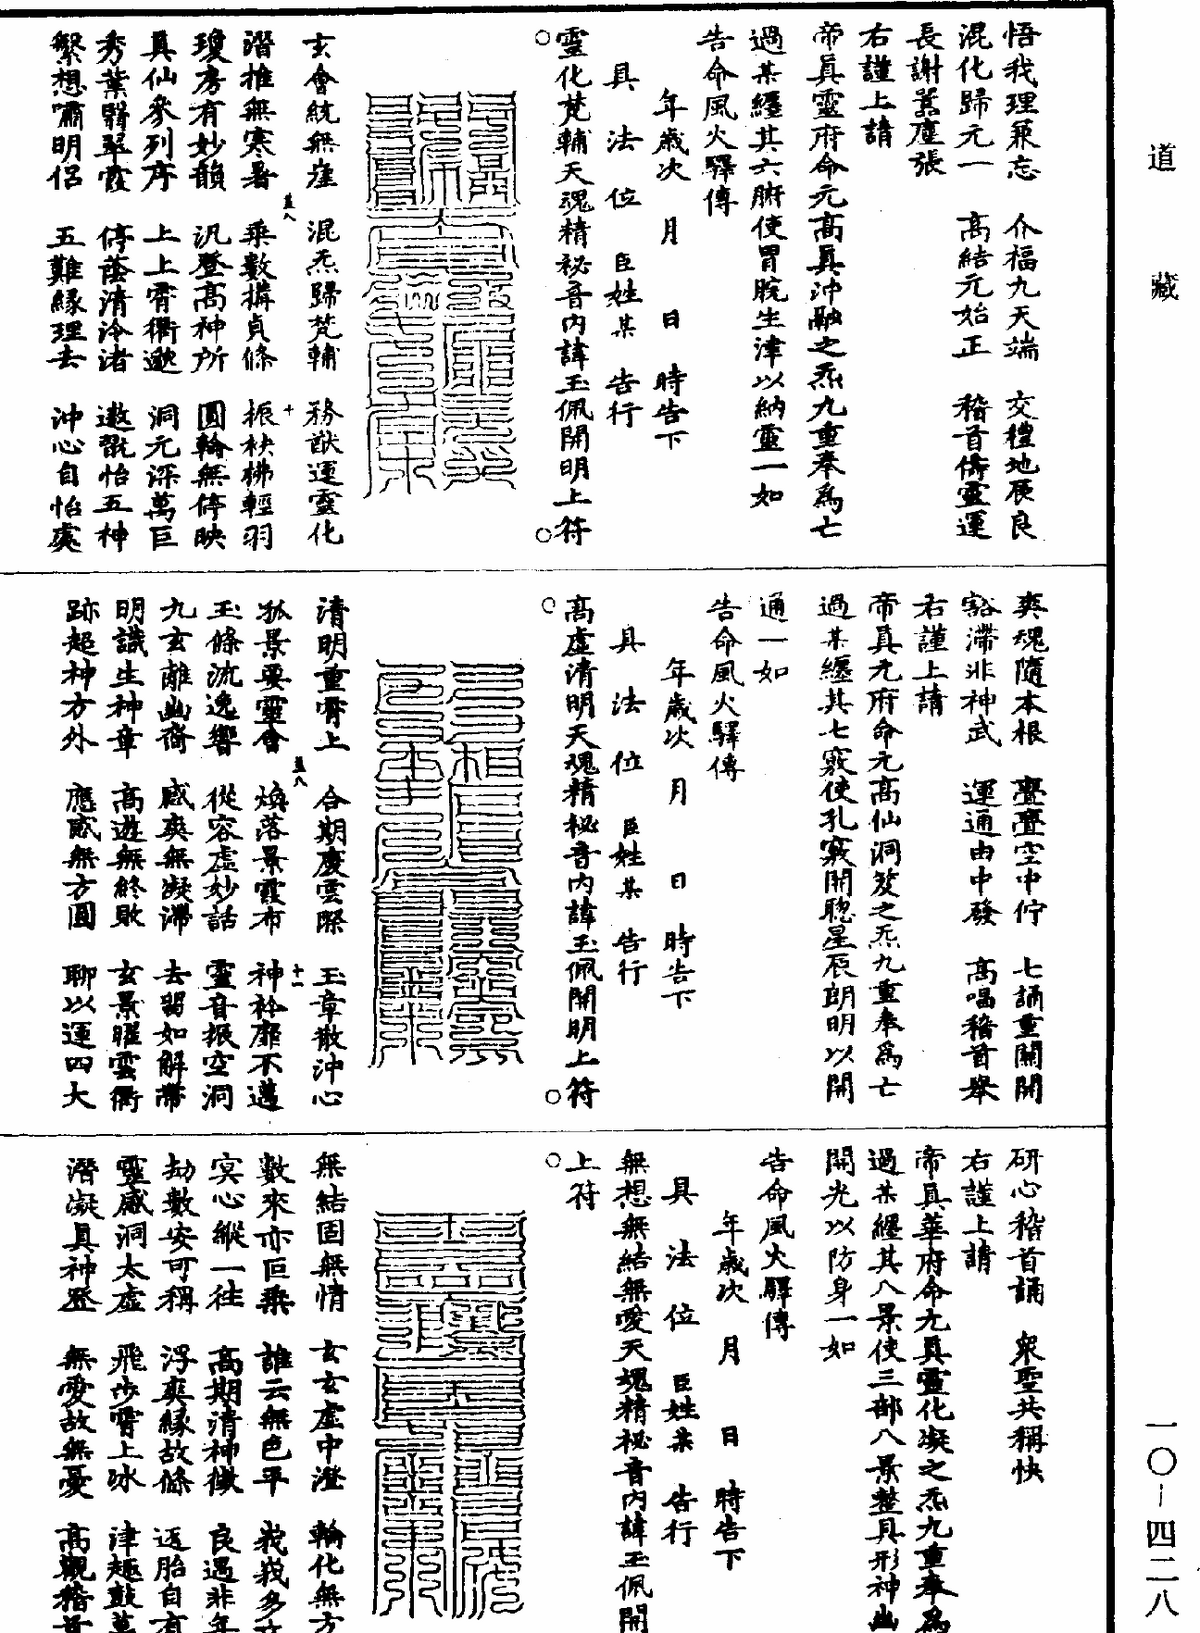 道藏
悟我理兼忘　介福九天端　交禮地辰良
混化歸元一　高結元始正　稽首儔靈運
長謝囂塵張
右謹上請
帝真靈府命元高真沖融之炁九重奉為亡
過某纏其六腑使胃脘生津以納靈一如
告命風火驛傳
年歲次　月　日　時告下
具　法　位　臣姓某　告行
靈化梵輔天魂精祕音內諱玉佩開明上符
玄會統無崖　混炁歸梵輔　務猷運靈化
潛推無寒暑　乘數構貞條　振袂拂輕羽
瓊房有妙韻　汎登高神所　圓輪無停映
真仙參列序　上上霄衢邈　洞元深萬巨
秀葉翳翠霞　停蔭清泠渚　遨翫怡五神
繫想嘯明侶　五難緣理去　沖心自怡處
爽魂隨本根　亹亹空中佇　七誦重關開
豁滯非神武　運通由中發　高唱稽首舉
右謹上請
帝真元府命元高仙洞笈之炁九重奉為亡
過某纏其七竅使孔竅開聰星辰朗明以開
通一如
告命風火驛傳
年歲次　月　日　時告下
具　法　位　臣姓某　告行
高虛清明天魂精祕音內諱玉佩開明上符
清明重霄上　合期慶雲際　玉章散沖心
孤景要靈會　煥落景霞布　神衿靡不邁
玉條流逸響　從容虛妙話　靈音振空洞
九玄離幽裔　感爽無凝滯　去留如解帶
明識生神章　高遊無終敗　玄景曜雲衢
跡超神方外　應感無方圓　聊以運四大
研心稽首誦　眾聖共稱快
右謹上請
帝真華府命元真靈化凝之炁九重奉為
過某纏其八景使三部八景整具形神幽
開光以防身一如
告命風火驛傳
年歲次　月　日　時告下
具　法　位　臣姓某　告行
無想無結無愛天魂精祕音內諱玉佩開
上符
無結固無情　玄玄虛中澄　輪化無方
數來亦叵乘　誰云無色平　峩峩多
冥心縱一往　高期清神徵　良遇非年
劫數安可稱　浮爽緣故條　迈胎自有
靈感洞太虛　飛步霄上冰　津趣鼓萬
潛凝真神登　無愛故無憂　高觀稽首
一〇—四二八